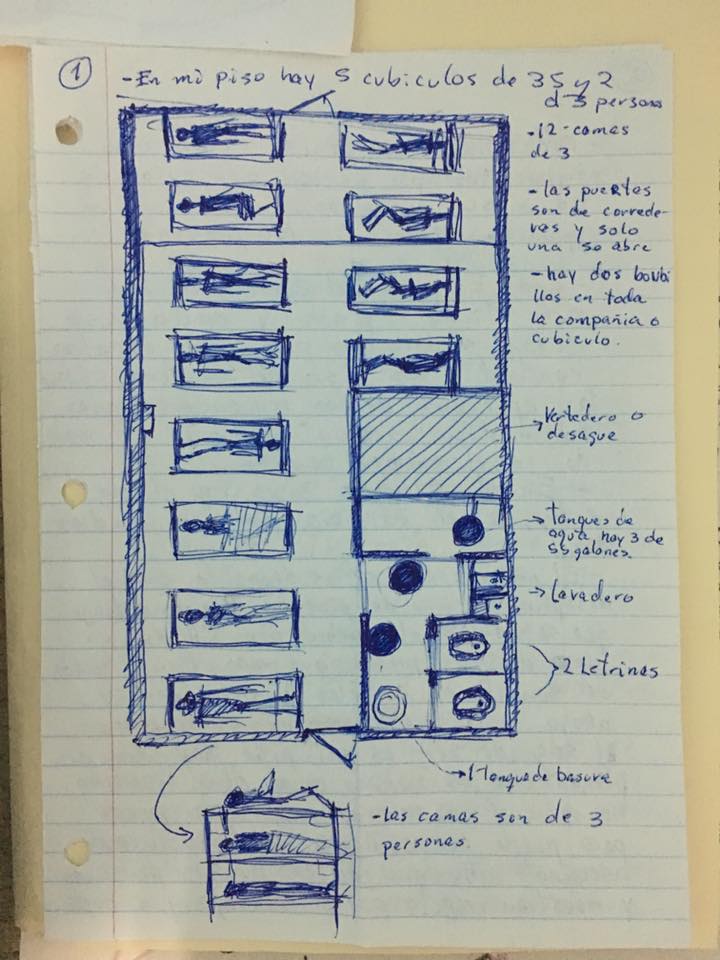 1
-En mi piso hay 5 cubiculos de 35 y 2
d 3 persona
.12-camas
de 3
-las puertas
son de correde-
ras y solo
una se abre
-hay dos bombi
llos en toda
la compañia o
cubiculo.
Vertedero o
desague
tanques de
agua, hay 3 de
55 galones.
Lavadero
2 Letrinas
1 tanque de basura
-las camas son de 3
personas.